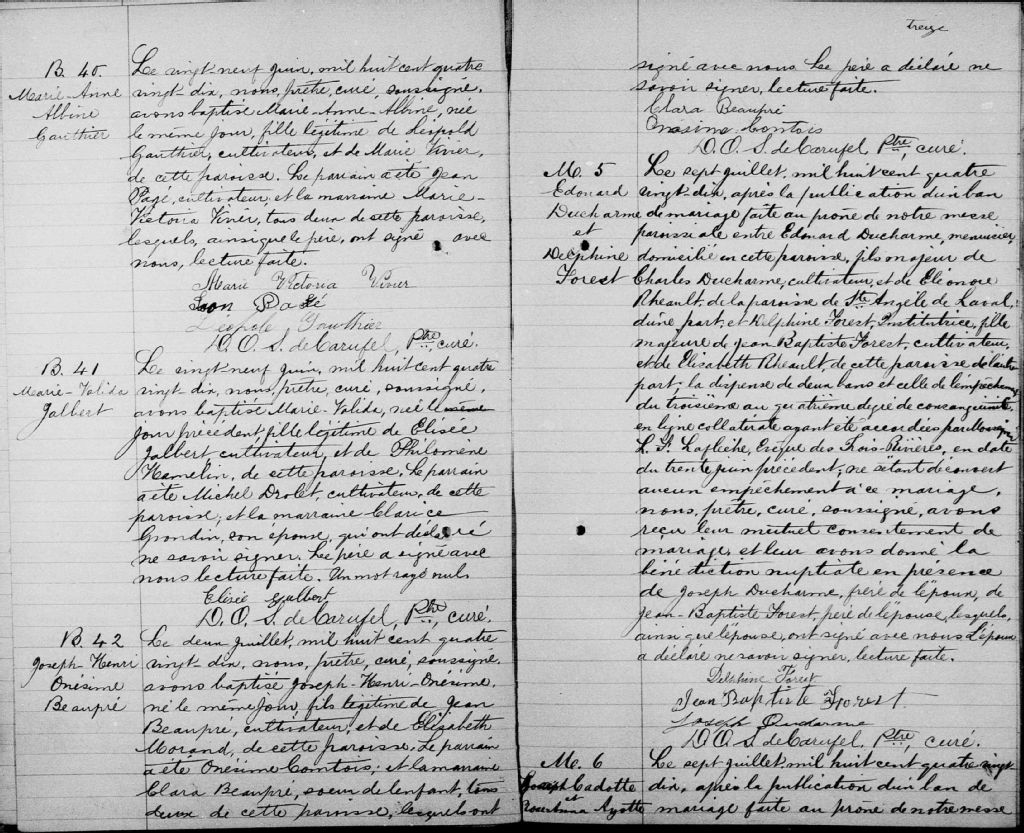 B. 40.
Marie-Anne
Albine
Gauthier
Le vingt-neuf juin, mil huit cent quatre
vingt-dix, nous, prêtre, curé, soussigné,
avons baptisé Marie-Anne-Albine, née
le même jour, fille légitime de Léopold
Gauthier, cultivateur, et de Marie Vivier,
de cette paroisse. Le parrain a été Jean
Pagé, cultivateur, et la marraine Marie-
Victoria Vivier, tous deux de cette paroisse,
lesquels, ainsi que le père, ont signé avec
nous, lecture faite.
Marie Victoria Vivier
Pagé
Léopole Gauthier
D. O. S. de Carufel, Ptre, curé.
B. 41
Marie-Valida
Jalbert
Le vingt-neuf juin, mil huit cent quatre
vingt-dix, nous, prêtre, curé, soussigné,
avons baptisé Marie-Valida, née le même
jour précédent, fille légitime de Elisée
Jalbert cultivateur, et de Philomène
Hamelin, de cette paroisse. Le parrain
a été Michel Drolet, cultivateur, de cette
paroisse; et la marraine Clarice
Grondin, son épouse, qui ont déclaré
ne savoir signer. Le père a signé avec
nous lecture faite. Un mot rayé nul.
Elisée Jalbert
D. O. S. de Carufel, Ptre, curé.
B. 42
Joseph-Henri
Onésime
Beaupré
Le deux juillet, mil huit cent quatre
vingt-dix, nous, prêtre, curé, soussigné,
avons baptisé Joseph-Henri-Onésime,
né le même jour, fils légitime de Jean
Beaupré, cultivateur, et de Elisabeth
Morand, de cette paroisse. Le parrain
a été Onésime Comtois; et la marraine
Clara Beaupré, soeur de l'enfant, tous
deux de cette paroisse, lesquels ont
treize
signé avec nous. Le père a déclaré ne
savoir signer, lecture faite.
Clara Beaupré
Onésime Comtois
D. O. S. de Carufel, Ptre, curé.
M. 5
Edouard
Ducharme
et
Delphine
Forest
Le sept juillet, mil huit cent quatre
vingt-dix, après la publication d'un ban
de mariage faite au prône de notre messe
paroissiale entre Edouard Ducharme, menuisier,
domicilié en cette paroisse, fils majeur de
Charles Ducharme, cultivateur, et de Eléonore
Rheault, de la paroisse de Ste Angèle de Laval,
d'une part; et Delphine Forest, Institutrice, fille
majeure de Jean Baptiste Forest, cultivateur,
et de Elisabeth Rheault, de cette paroisse de l'autre
part; la dispense de deux bans et celle de l'empêchement
du troisième au quatrième degré de consanguinité
en ligne collatérale ayant été accordées par Monseigneur
L. F. Laflèche, Evêque des Trois-Rivières, en date
du trente juin précédent; ne s'étant découvert
aucun empêchement à ce mariage,
nous, prêtre, curé, soussigné, avons
reçu leur mutuel consentement de
mariage, et leur avons donné la
bénédiction nuptiale en présence
de Joseph Ducharme, frère de l'époux, de
Jean-Baptiste Forest, père de l'épouse, lesquels,
ainsi que l'épouse, ont signé avec nous. L'époux
a déclaré ne savoir signer, lecture faite.
Delphine Forest
Jean Baptiste Forest
Joseph Ducharme
D. O. S. de Carufel, Ptre, curé.
M. 6
Joseph Cadotte
et
Ayotte
Le sept juillet, mil huit cent quatre vingt-
dix, après la publication d'un ban de
mariage faite au prône de notre messe